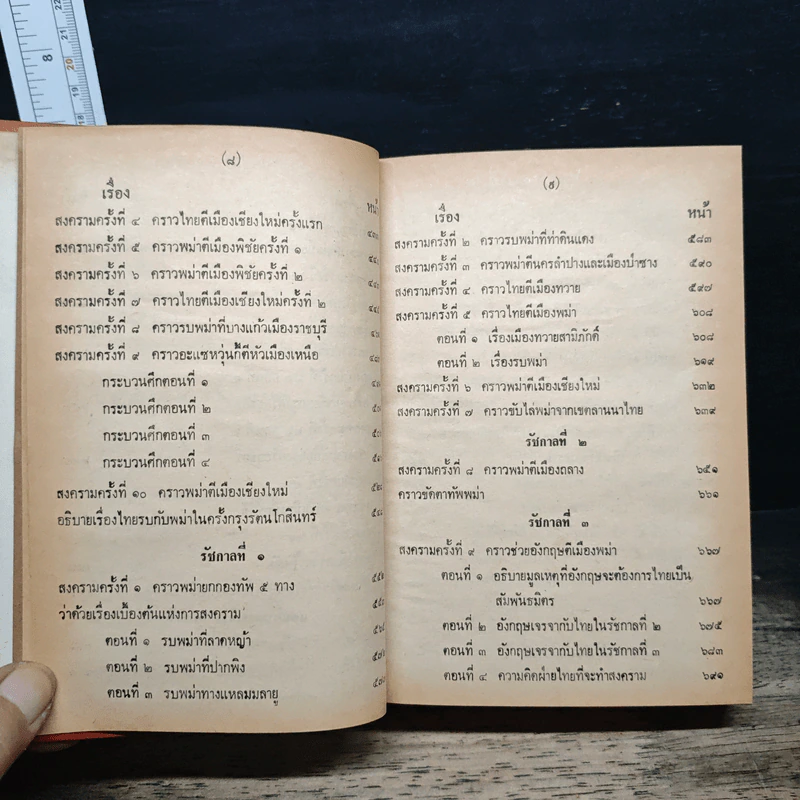 8
22
21
20
19
18
(๘)
เรื่อง
หน้า
สงครามครั้งที่ ๔ คราวไทยตีเมืองเชียงใหม่ครั้งแรก
สงครามครั้งที่ ๕ คราวพม่าตีเมืองพิชัยครั้งที่ ๑
สงครามครั้งที่ ๖ คราวพม่าตีเมืองพิชัยครั้งที่ ๒
สงครามครั้งที่ ๗ คราวไทยตีเมืองเชียงใหม่ครั้งที่ ๒
สงครามครั้งที่ ๘ คราวรบพม่าที่บางแก้วเมืองราชบุรี
สงครามครั้งที่ ๙ คราวอะแซหวุ่นกี้ตีหัวเมืองเหนือ
กระบวนศึกตอนที่ ๑
กระบวนศึกตอนที่ ๒
กระบวนศึกตอนที่ ๓
กระบวนศึกตอนที่ ๔
สงครามครั้งที่ ๑๐ คราวพม่าตีเมืองเชียงใหม่
อธิบายเรื่องไทยรบกับพม่าในครั้งกรุงรัตนโกสินทร์
รัชกาลที่ ๑
สงครามครั้งที่ ๑ คราวพม่ายกกองทัพ ๕ ทาง
ว่าด้วยเรื่องเบื้องต้นแห่งการสงคราม
ตอนที่ ๑ รบพม่าที่ลาดหญ้า
ตอนที่ ๒ รบพม่าที่ปากพิง
ตอนที่ ๓ รบพม่าทางแหลมมลายู
(๙)
เรื่อง หน้า
สงครามครั้งที่ ๒ คราวรบพม่าที่ท่าดินแดง ๕๘๓
สงครามครั้งที่ ๓ คราวพม่าตีนครลำปางและเมืองป่าซาง ๕๙๐
สงครามครั้งที่ ๔ คราวไทยตีเมืองทวาย ๕๙๗
สงครามครั้งที่ ๕ คราวไทยตีเมืองพม่า ๖๐๘
ตอนที่ ๑ เรื่องเมืองทวายสามิภักดิ์ ๖๐๘
ตอนที่ ๒ เรื่องรบพม่า ๖๑๙
สงครามครั้งที่ ๖ คราวพม่าตีเมืองเชียงใหม่ ๖๓๒
สงครามครั้งที่ ๗ คราวขับไล่พม่าจากเขตลานนาไทย ๖๓๙
รัชกาลที่ ๒
สงครามครั้งที่ ๘ คราวพม่าตีเมืองถลาง ๖๕๑
คราวขัดตาทัพพม่า ๖๖๑
รัชกาลที่ ๓
สงครามครั้งที่ ๙ คราวช่วยอังกฤษตีเมืองพม่า ๖๖๗
ตอนที่ ๑ อธิบายมูลเหตุที่อังกฤษจะต้องการไทยเป็น
สัมพันธมิตร ๖๖๗
ตอนที่ ๒ อังกฤษเจรจากับไทยในรัชกาลที่ ๒ ๖๗๕
ตอนที่ ๓ อังกฤษเจรจากับไทยในรัชกาลที่ ๓ ๖๘๓
ตอนที่ ๔ ความคิดฝ่ายไทยที่จะทำสงคราม ๖๙๑